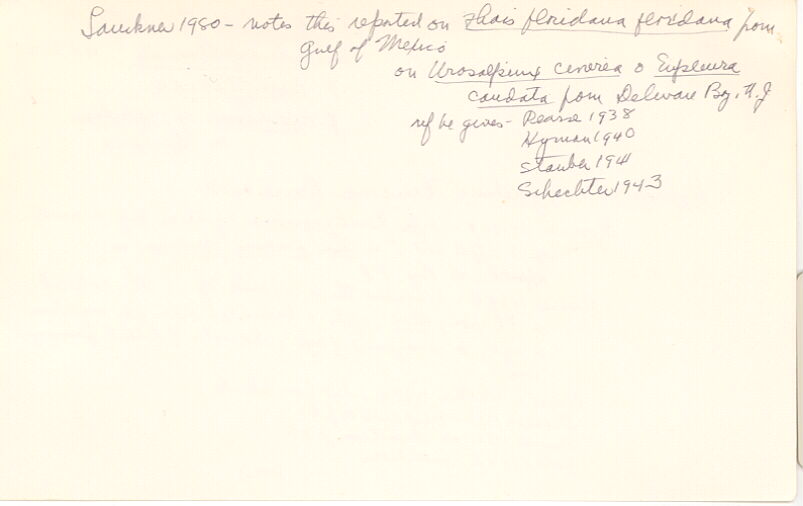 Lauckner 1980 - notes this reported on Thais floridana floridana from
Gulf of Mexico
on Urosalpinx cinerea o Eupleura
caudata from Delaware Bay, N.J
ref he gives - Pearse 1938
Hyman 1940
Stauber 1941
Schechter 1943